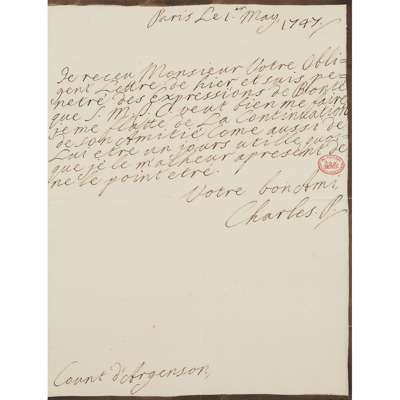 Paris Le 1er May, 1747.
Je receu Monsieur Votre Obli-
gent Lettre de hier et suis pe-
netré des expressions de Bonté
que S. M. T. C. veut bien me faire
je me flatte de La Continuation
de son Amitié Come aussi de
Lui etre un jours utille quoi
que je le malheur apresent de
ne le point etre.
Votre bon Ami
Charles. P.
Count d'Argenson,